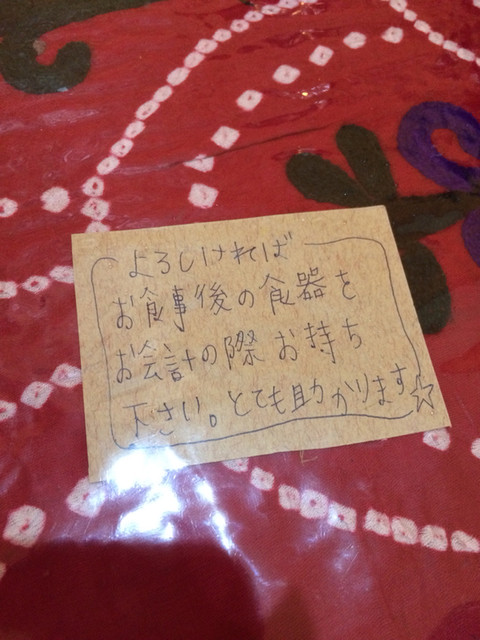 よろしければ
お食事後の食器を
お会計の際お持ち
下さい。とても助かります☆